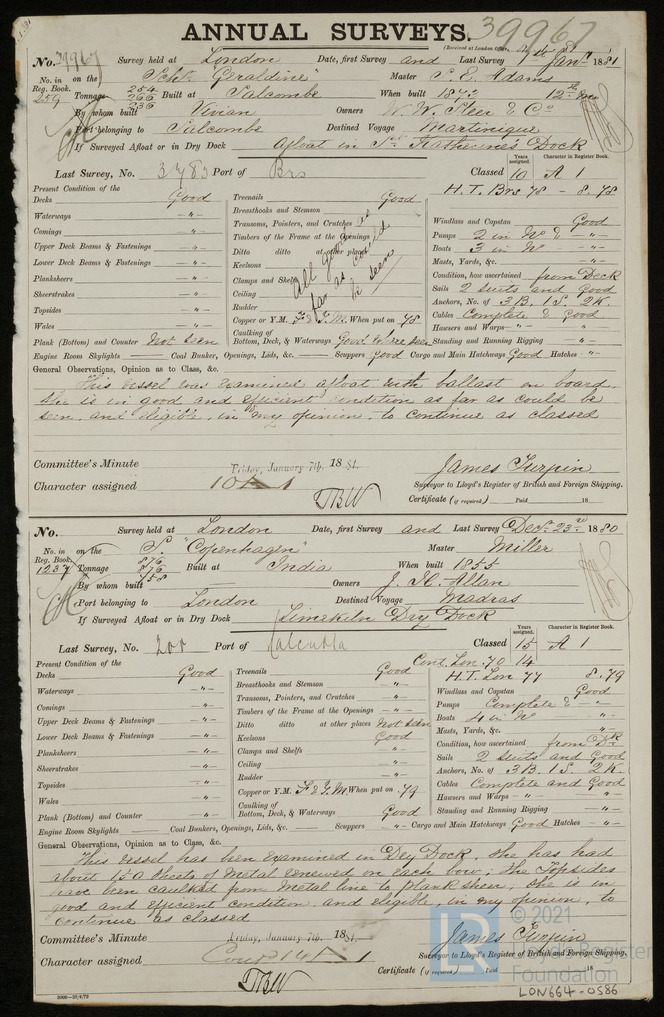 ANNUAL SURVEYS. 39967
(Received at London Office,
No. 39967 Survey held at London Date, first Survey and Last Survey Jany 1881
No. in Reg. Book. 259 on the Schr "Geraldine" Master S. E. Adams
Tonnage 254 266 236 Built at Salcombe When built 1843 12th
By whom built Vivian Owners W. W. Steer & Co
Port belonging to Salcombe Destined Voyage Martinique
If Surveyed Afloat or in Dry Dock Afloat in St Katherines Dock
Last Survey, No. 3783 Port of Brs Classed Years assigned. 10 Character in Register Book. A 1
H.T. Brs 78 - 8.78
Present Condition of the
Decks Good
Waterways —"—
Comings —"—
Upper Deck Beams & Fastenings —"—
Lower Deck Beams & Fastenings —"—
Planksheers —"—
Sheerstrakes —"—
Topsides —"—
Wales —"—
Plank (Bottom) and Counter Not seen
Treenails Good
Breasthooks and Stemson
Transoms, Pointers, and Crutches
Timbers of the Frame at the Openings
Ditto ditto at other places
Keelsons
Clamps and Shelfs
Ceiling
Rudder
All good as far as could be seen
Copper or Y.M. F & Y.M. When put on 78
Caulking of Bottom, Deck, & Waterways Good where seen
Windlass and Capstan Good
Pumps 2 in No & —"—
Boats 3 in No —"—
Masts, Yards, &c. —"—
Condition, how ascertained from Deck
Sails 2 suits and Good
Anchors, No. of 3 B. 1 S. 2 K.
Cables Complete & Good
Hawsers and Warps —"— —"—
Standing and Running Rigging —"—
Engine Room Skylights — Coal Bunker, Openings, Lids, &c. — Scuppers Good Cargo and Main Hatchways Good Hatches —"—
General Observations, Opinion as to Class, &c.
This vessel was examined afloat with ballast on board,
she is in good and efficient condition as far as could be
seen, and eligible, in my opinion, to continue as classed
Committee's Minute Friday, January 7th, 1881.
Character assigned 10 A 1
TBW
James Turpin
Surveyor to Lloyd's Register of British and Foreign Shipping.
Certificate (if required) Paid 18
No. Survey held at London Date, first Survey and Last Survey Decr 23rd 1880
No. in Reg. Book. 1237 on the S. "Copenhagen" Master Miller
Tonnage 876 876 758 Built at India When built 1855
By whom built — Owners J. H. Allan
Port belonging to London Destined Voyage Madras
If Surveyed Afloat or in Dry Dock Limekiln Dry Dock
Last Survey, No. 200 Port of Calcutta Classed Years assigned. 15 Character in Register Book. A 1
Cont. Lon. 70 14
H.T. Lon 77 8.79
Present Condition of the
Decks Good
Waterways —"—
Comings —"—
Upper Deck Beams & Fastenings —"—
Lower Deck Beams & Fastenings —"—
Planksheers —"—
Sheerstrakes —"—
Topsides —"—
Wales —"—
Plank (Bottom) and Counter —"—
Treenails Good
Breasthooks and Stemson —"—
Transoms, Pointers, and Crutches —"—
Timbers of the Frame at the Openings —"—
Ditto ditto at other places Not seen
Keelsons Good
Clamps and Shelfs —"—
Ceiling —"—
Rudder —"—
Copper or Y.M. F & Y.M When put on 79
Caulking of Bottom, Deck, & Waterways Good
Windlass and Capstan Good
Pumps Complete & —"—
Boats 4 in No —"—
Masts, Yards, &c. —"—
Condition, how ascertained from Dk
Sails 2 suits and Good
Anchors, No. of 3 B. 1 S. 2 K.
Cables Complete and Good
Hawsers and Warps —"— —"—
Standing and Running Rigging —"—
Engine Room Skylights — Coal Bunkers, Openings, Lids, &c. — Scuppers —"— Cargo and Main Hatchways Good Hatches —"—
General Observations, Opinion as to Class, &c.
This vessel has been examined in Dry Dock. She has had
about 150 sheets of metal renewed on each bow; the Topsides
have been caulked from Metal line to plank sheer; she is in
good and efficient condition, and eligible, in my opinion, to
continue as classed
Committee's Minute Friday, January 7th, 1881.
Character assigned Contd 14 A 1
TBW
James Turpin
Surveyor to Lloyd's Register of British and Foreign Shipping.
Certificate (if required) Paid 18
© 2021
Lloyd's Register
Foundation
LON664-0586